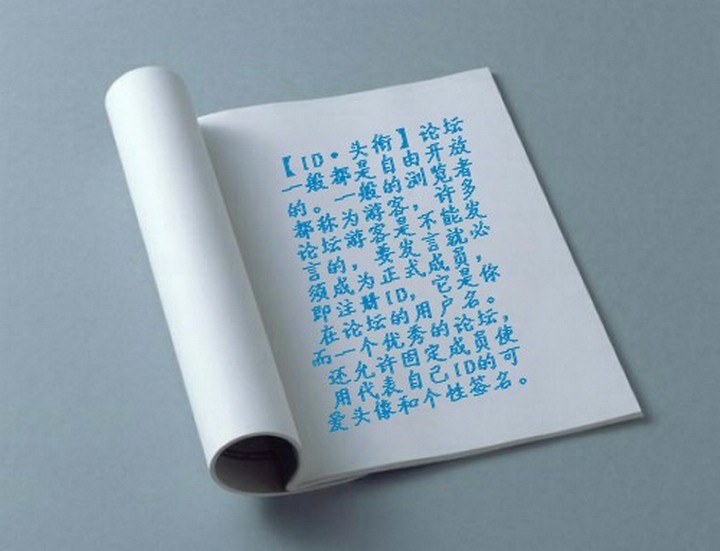 【ID·头衔】论坛
一般都是自由开放
的。一般的浏览者
都称为游客，许多
论坛游客是不能发
言的，要发言就必
须成为正式成员，
即注册ID，它是你
在论坛的用户名。
而一个优秀的论坛，
还允许固定成员使
用代表自己ID的可
爱头像和个性签名。